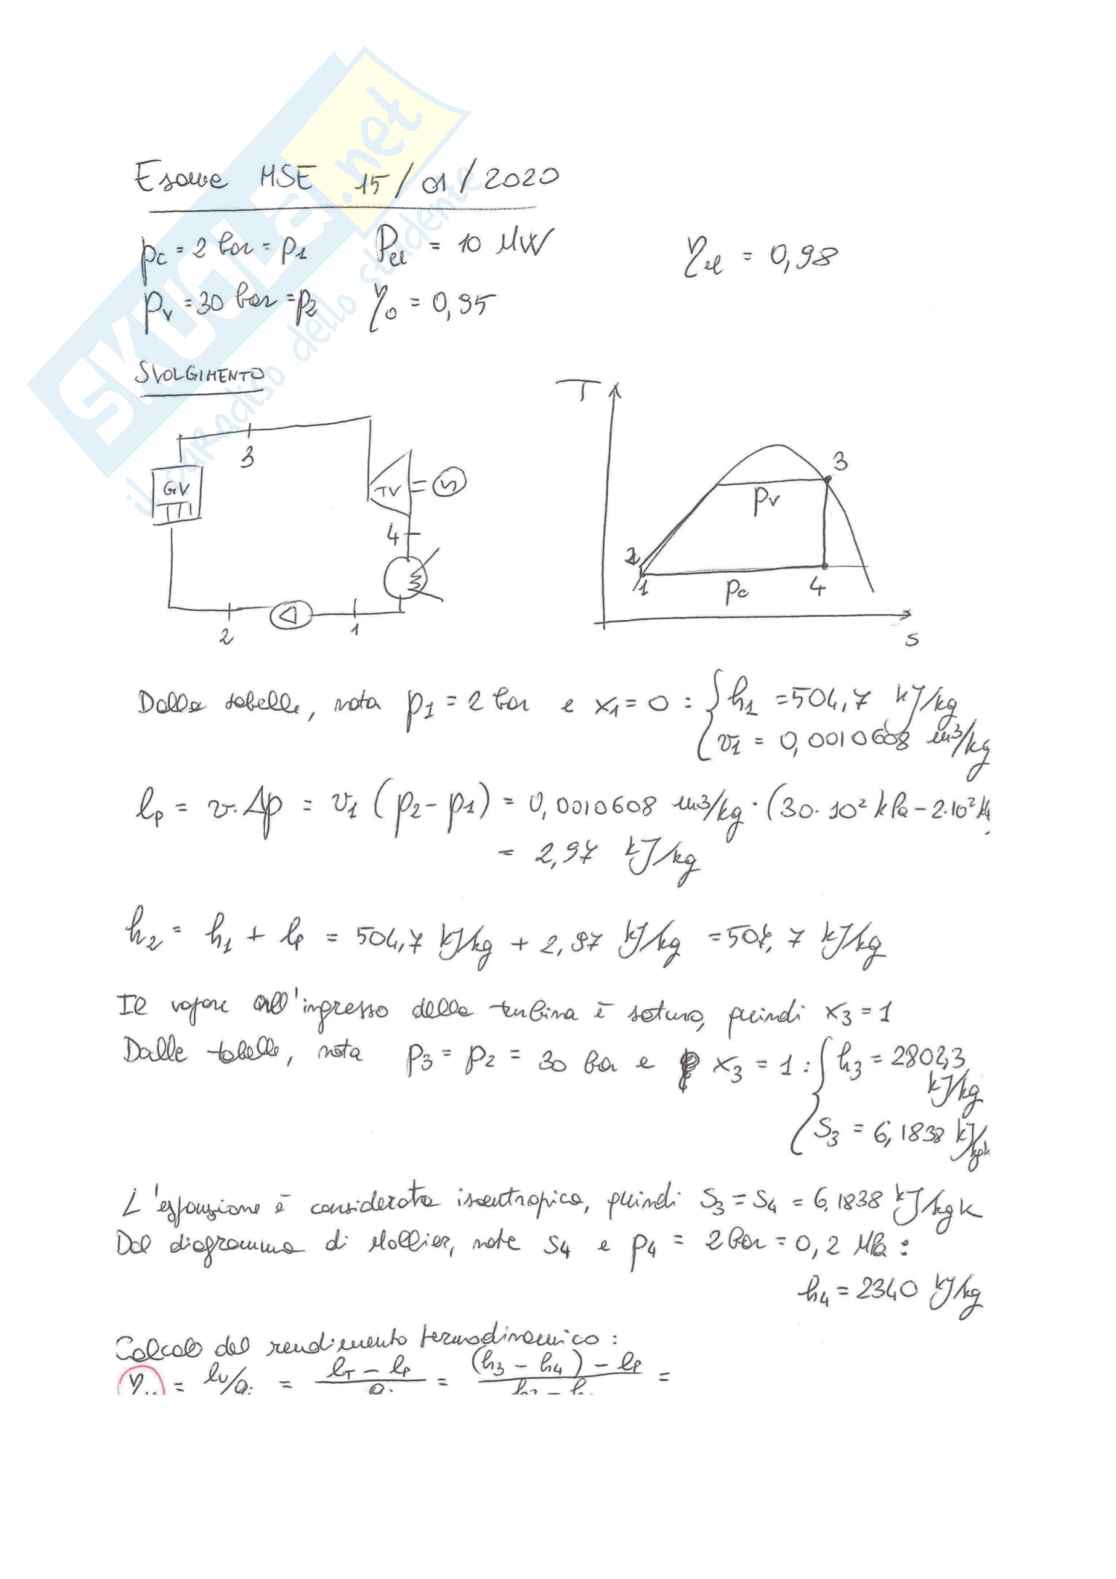 SKUOLA.net
il paradiso dello studente
Esame MSE 15/01/2020
pc = 2 bar = p1 Pel = 10 MW ηel = 0,98
pv = 30 bar = p2 ηo = 0,95
SVOLGIMENTO
3
GV
TV
4
2
1
T
3
pv
2
1
pc
4
s
Dalle tabelle, nota p1 = 2 bar e x1 = 0 : { h1 = 504,7 kJ/kg
v1 = 0,0010608 m3/kg
lp = v·Δp = v1 (p2 - p1) = 0,0010608 m3/kg · (30·10² kPa - 2·10²
= 2,97 kJ/kg
h2 = h1 + lp = 504,7 kJ/kg + 2,97 kJ/kg = 507,7 kJ/kg
Il vapore all'ingresso della turbina è saturo, quindi x3 = 1
Dalle tabelle, nota p3 = p2 = 30 bar e x3 = 1 : { h3 = 2802,3
kJ/kg
s3 = 6,1838 kJ/kgK
L'espansione è considerata isentropica, quindi s3 = s4 = 6,1838 kJ/kgK
Dal diagramma di Mollier, note s4 e p4 = 2 bar = 0,2 MPa :
h4 = 2340 kJ/kg
Calcolo del rendimento termodinamico :
= lu/ = lT - lp = (h3 - h4) - lp =